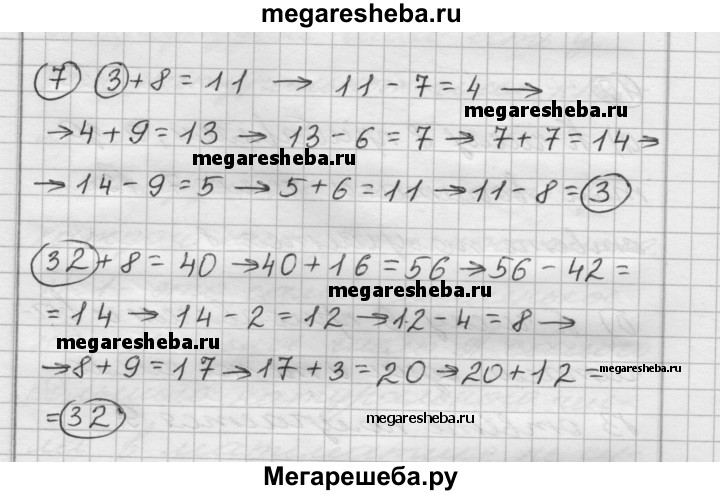 megaresheba.ru
7 3 + 8 = 11 → 11 - 7 = 4 →
megaresheba.ru
→ 4 + 9 = 13 → 13 - 6 = 7 → 7 + 7 = 14 →
megaresheba.ru
→ 14 - 9 = 5 → 5 + 6 = 11 → 11 - 8 = 3
32 + 8 = 40 → 40 + 16 = 56 → 56 - 42 =
megaresheba.ru
= 14 → 14 - 2 = 12 → 12 - 4 = 8 →
megaresheba.ru
→ 8 + 9 = 17 → 17 + 3 = 20 → 20 + 12 =
megaresheba.ru
= 32
megaresheba.ru
Мегарешеба.ру